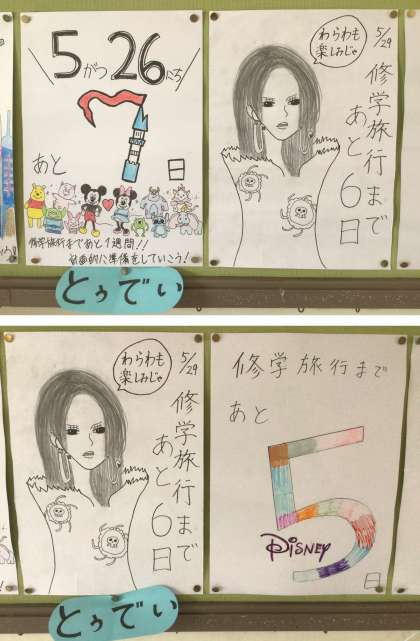 5がつ26にち
あと 7 日
修学旅行まであと1週間!!
計画的に準備をしていこう!
わらわも
楽しみじゃ
5/29
修学旅行まで
あと6日
とぅでい
わらわも
楽しみじゃ
5/29
修学旅行まで
あと6日
修学旅行まで
あと
5
DISNEY
日
とぅでい